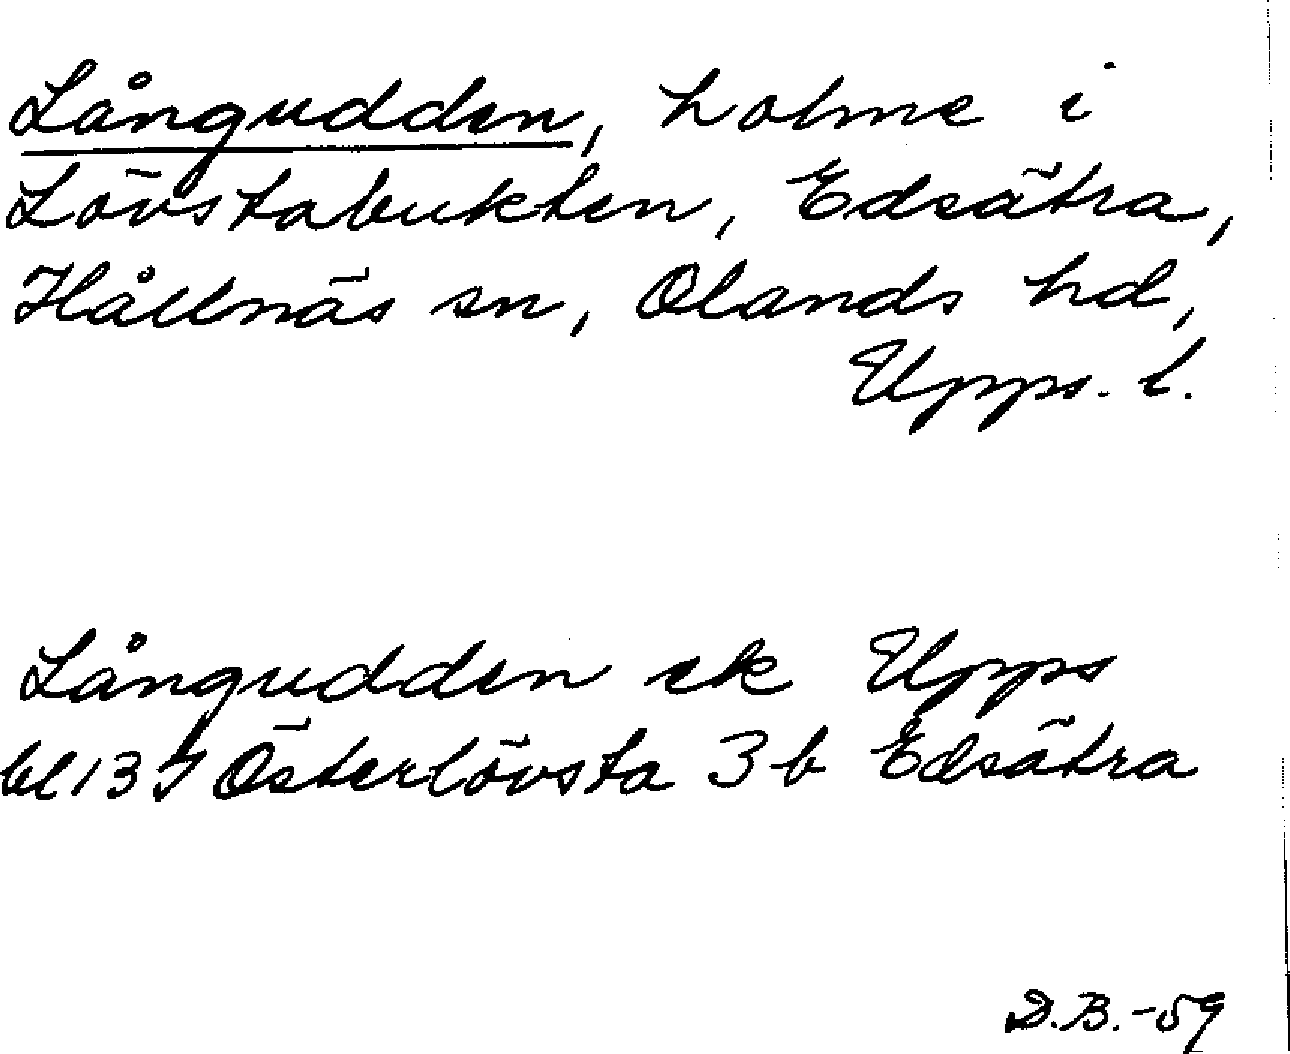 Långudden, holme i
Lövstabukten, Edsätra,
Hållnäs sn, Olands hd,
Upps. l.
Långudden ek Upps
bl 13 J Österlövsta 3 b Edsätra
D.B. -59